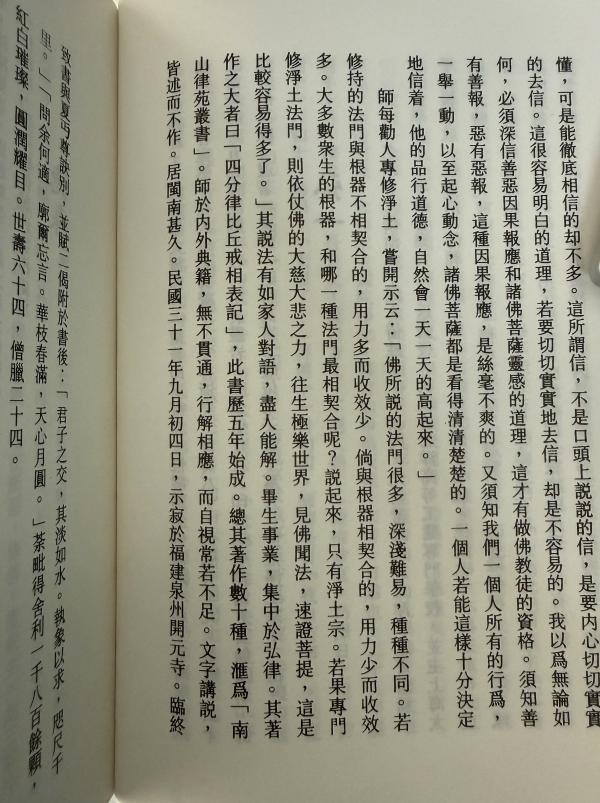 懂，可是能徹底相信的却不多。這所謂信，不是口頭上說說的信，是要内心切切實實
的去信。這很容易明白的道理，若要切切實實地去信，却是不容易的。我以爲無論如
何，必須深信善惡因果報應和諸佛菩薩靈感的道理，這才有做佛教徒的資格。須知善
有善報，惡有惡報，這種因果報應，是絲毫不爽的。又須知我們一個人所有的行爲，
一舉一動，以至起心動念，諸佛菩薩都是看得清清楚楚的。一個人若能這樣十分決定
地信着，他的品行道德，自然會一天一天的高起來。」
師每勸人專修淨土，嘗開示云：「佛所説的法門很多，深淺難易，種種不同。若
修持的法門與根器不相契合的，用力多而收效少。倘與根器相契合的，用力少而收效
多。大多數衆生的根器，和哪一種法門最相契合呢？説起來，只有淨土宗。若果專門
修淨土法門，則依仗佛的大慈大悲之力，往生極樂世界，見佛聞法，速證菩提，這是
比較容易得多了。」其説法有如家人對語，盡人能解。畢生事業，集中於弘律。其著
作之大者曰「四分律比丘戒相表記」，此書歷五年始成。總其著作數十種，滙爲「南
山律苑叢書」。師於内外典籍，無不貫通，行解相應，而自視常若不足。文字講説，
皆述而不作。居閩南甚久。民國三十一年九月初四日，示寂於福建泉州開元寺。臨終
致書與夏丏尊訣别，並賦二偈附於書後：「君子之交，其淡如水。執象以求，咫尺千
里。」「問余何適，廓爾忘言。華枝春滿，天心月圓。」荼毗得舍利一千八百餘顆，
紅白璀璨，圓潤耀目。世壽六十四，僧臘二十四。